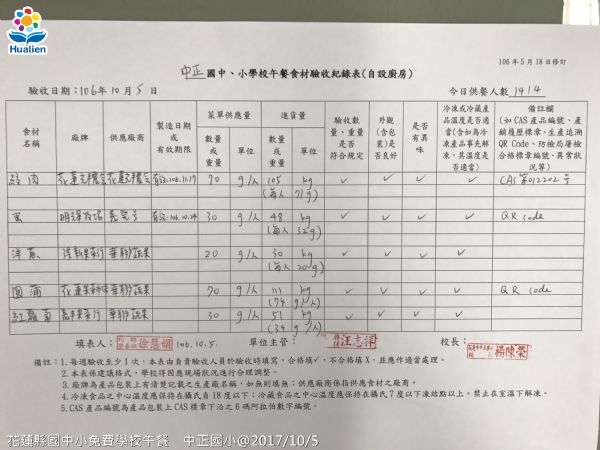 Hualien
106年5月18日修訂
中正國中、小學校午餐食材驗收紀錄表(自設廚房)
驗收日期：106年10月5日
今日供餐人數1914
食材名稱 廠牌 供應廠商 製造日期或有效期限 菜單供應量 進貨量 驗收數量、重量是否符合規定 外觀(含包裝)是否良好 是否有異味 冷凍或冷藏產品溫度是否適當(含如為冷凍產品事先解凍，其溫度是否適當) 備註欄(如CAS產品編號、產銷履歷標章、生產追溯QR Code、防檢局屠檢合格標章編號、異常狀況等)
數量或重量 單位 數量或重量 單位
肉 70 g/人 105 kg ✓ ✓ ✓ ✓ CAS第012202號
(每人71g)
蛋 有效:106.10.24 30 g/人 48 kg ✓ ✓ ✓ ✓ QR code
(每人32g)
洋蔥 20 g/人 30 kg ✓ ✓ ✓
(每人20g)
圓蒲 70 g/人 111 kg ✓ ✓ ✓ QR code
(74g/人)
紅蘿蔔 30 g/人 51 kg ✓ ✓ ✓
(34g/人)
填表人： 徐慧娟 106.10.5. 單位主管： 汪志清 校長： 楊陳榮
備註：1.每週驗收至少1次，本表由負責驗收人員於驗收時填寫，合格填✓，不合格填X，並應作適當處理。
2.本表係建議格式，學校得因應現場狀況進行合理調整。
3.廠牌為產品包裝上有清楚記載之生產廠名稱，如無則填無；供應廠商係指供應食材之廠商。
4.冷凍食品之中心溫度應保持在攝氏負18度以下；冷藏食品之中心溫度應保持在攝氏7度以下凍結點以上。禁止在室溫下解凍。
5.CAS產品編號為產品包裝上CAS標章下沿之6碼阿拉伯數字編號。
花蓮縣國中小免費學校午餐　中正國小@2017/10/5